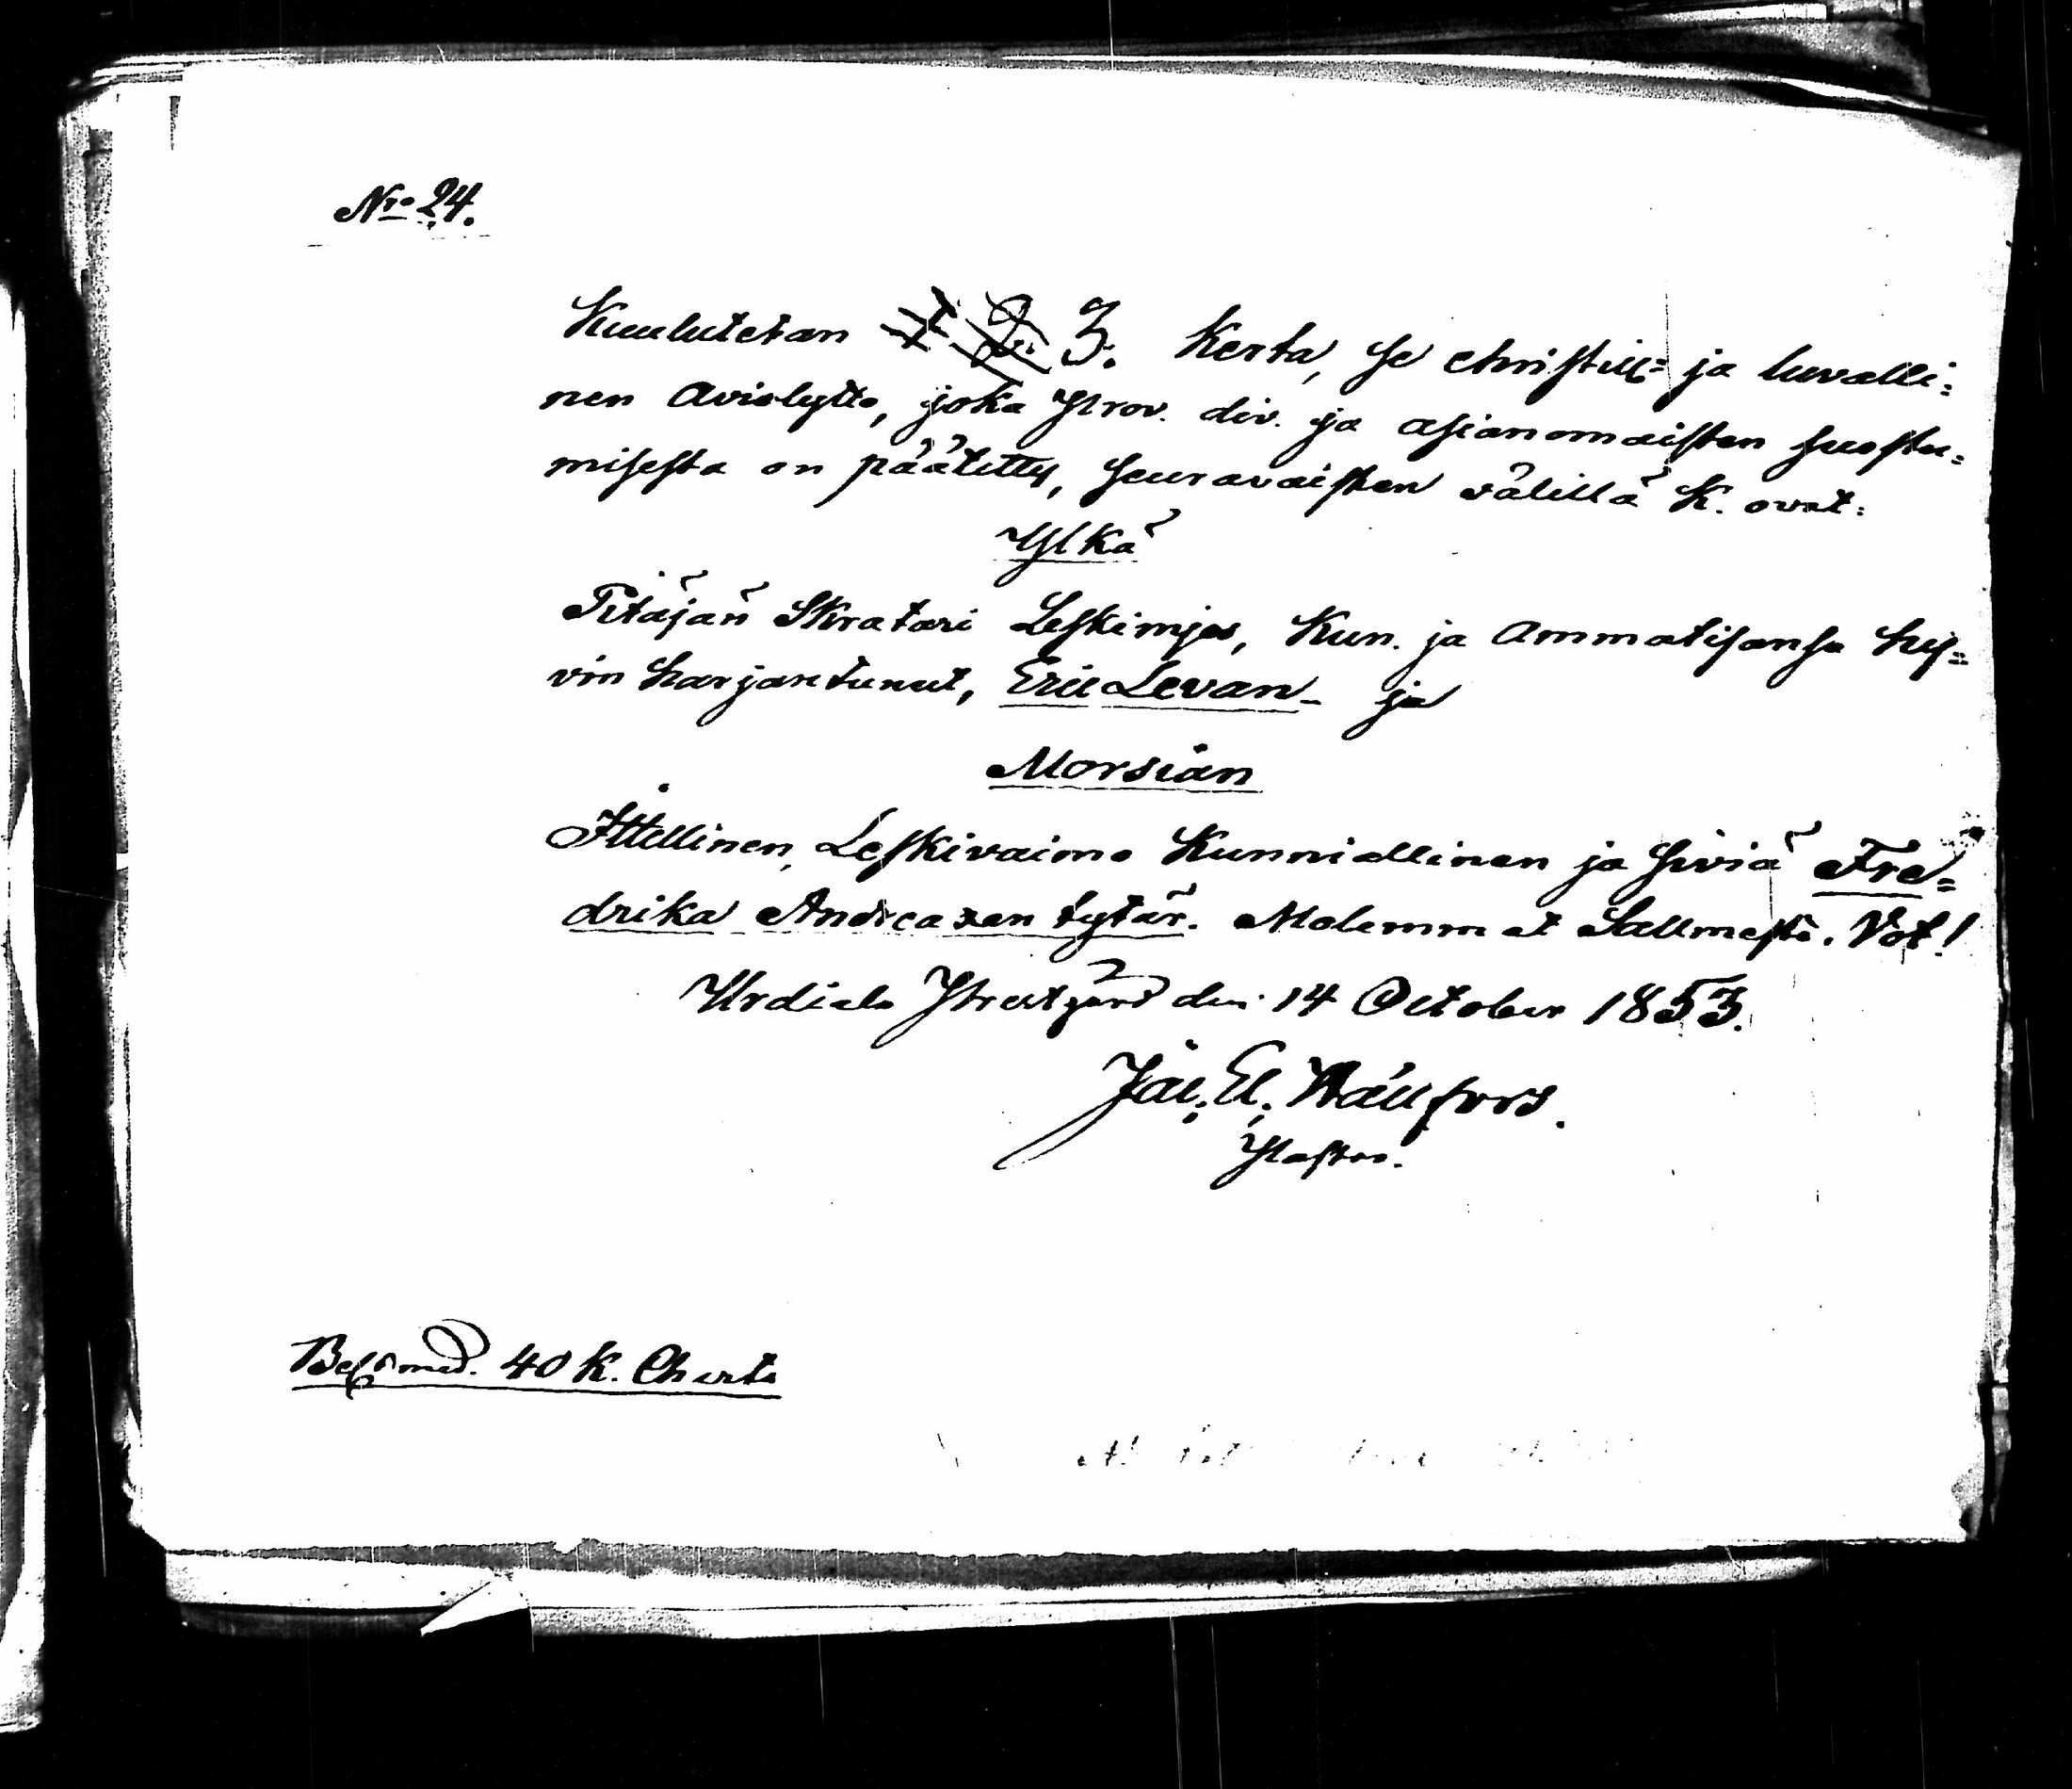 Nro 24.
Kuulutetan 1 2. 3. Kerta, se christill= ja luvalli=
nen Avioliytto, joka Prov. div. ja asianomaisten suostu=
misesta on päätetty, seuravaisten välillä K. ovat:
Ylkä
Pitäjän Skratari Leskimjes, Kun. ja Ammatisansa hy=
vin harjantunut, Eric Levan ja
Morsian
Ittellinen, Leskivaimo Kunniallinen ja siviä Fre=
drika Andreaxen tytär. Molemmat Salmesta. Vot!
Urdiala Prestgård den 14 October 1853.
Jac. El. Wallfors.
Pastor.
Bes. med. 40 K. Charta